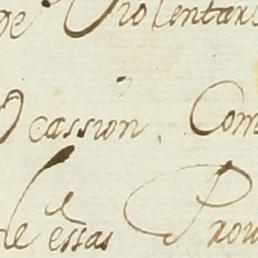 de Violentar
Ocassion, Com
de essas Prou